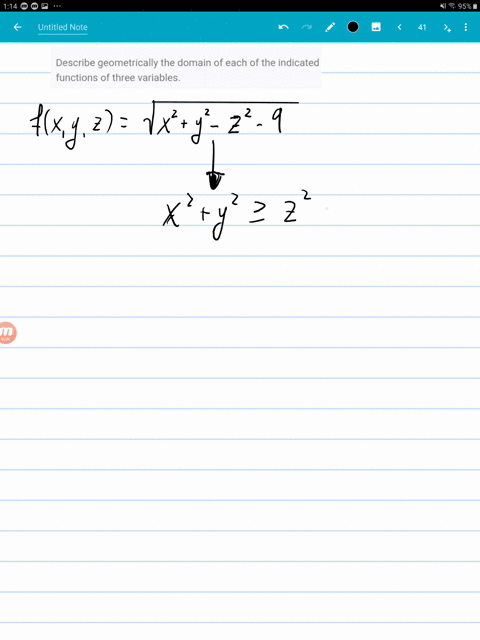 1:14 ... 95%
← Untitled Note 41
Describe geometrically the domain of each of the indicated
functions of three variables.
f(x, y, z) = √x² + y² - z² - 9
x² + y² ≥ z²
m